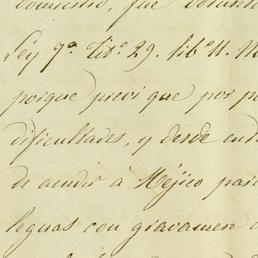 fue
Ley 9ª Titº 29. libº 11.
porque previ que por
dificultades, y desde
de acudir á Méjico
leguas con gravamen